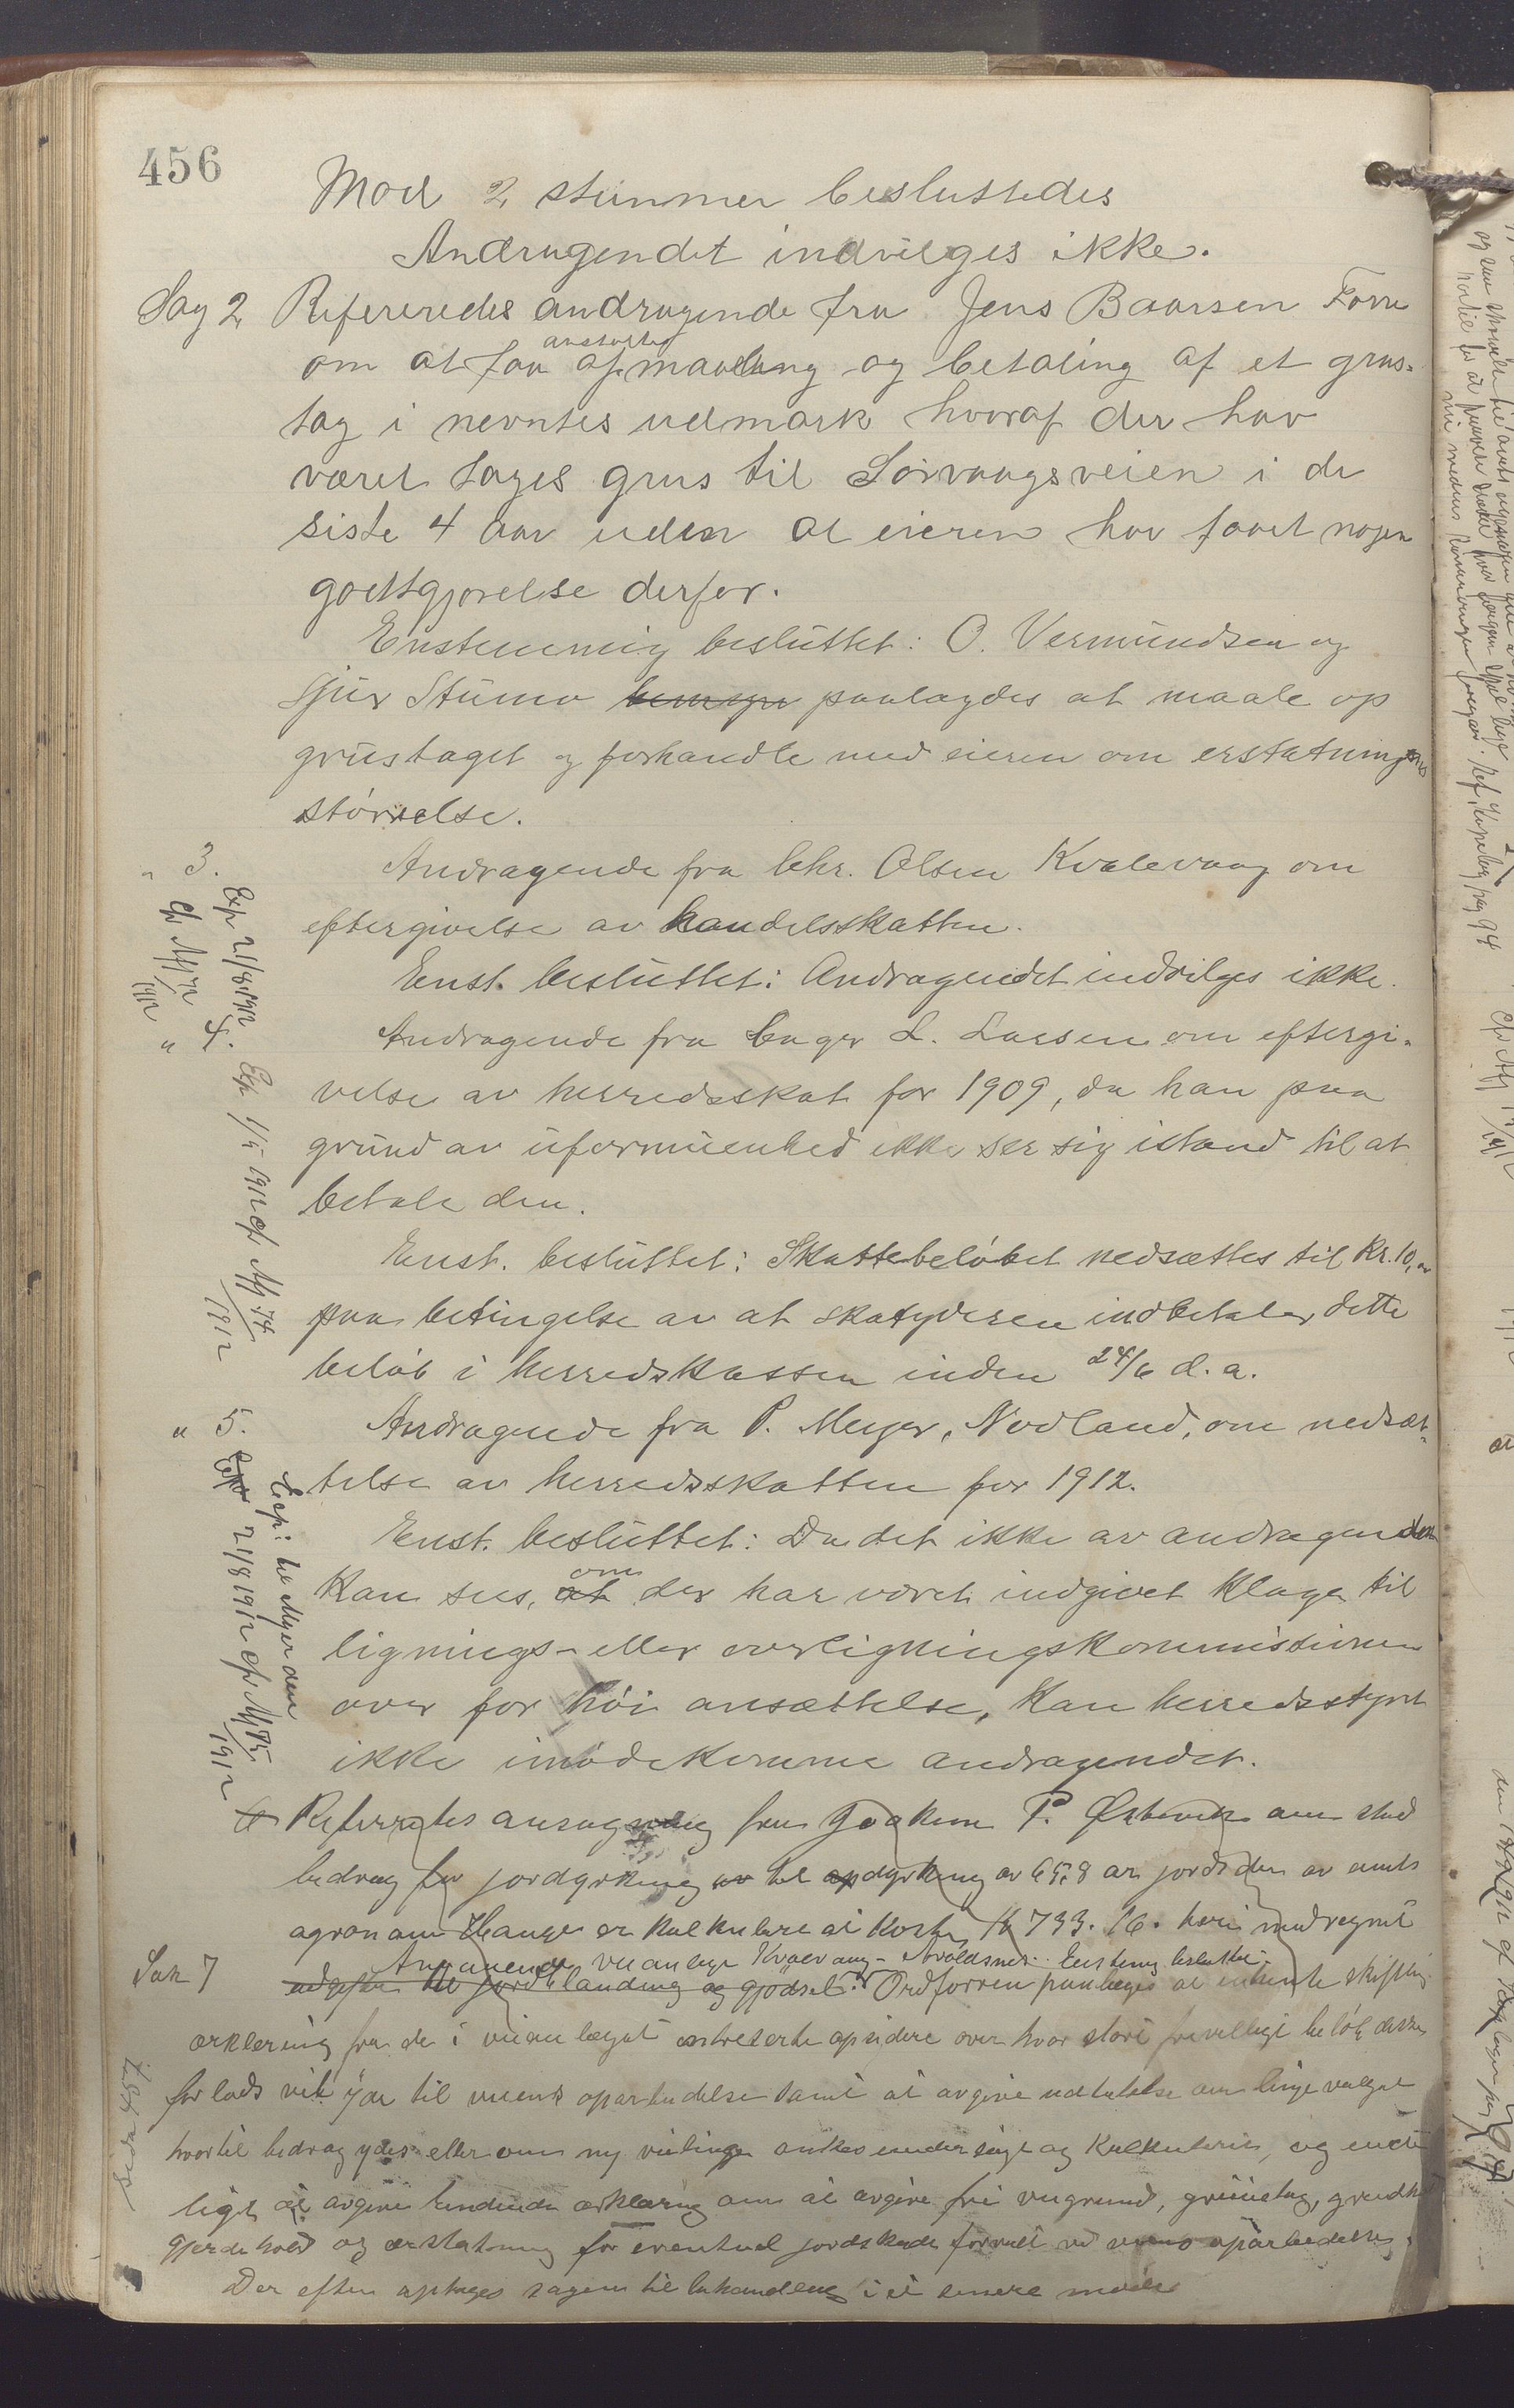 456
Mod 2 stemmer besluttedes
Andragendet indvilges ikke.
Sag 2 Refereredes andragende fra Jens Baarsen Forre
anstalted
om at faa afmaaling og betaling af et grus-
tag i nevntes udmark hvoraf der hav
været tages grus til Sørvaagsveien i de
siste 4 aar uden at eieren hav faaet nogen
godtgjørelse derfor.
Enstemmig besluttet: O. Vermundsen og
Sjur Stumo paalagdes at maale op
grustaget og forhandle med eieren om erstatningens
størrelse.
" 3. Andragende fra Chr. Olsen Kvalevaag om
eftergivelse av handelsskatten.
Enst. besluttet: Andragendet indvilges ikke.
Exp 21/8 1912
" 4. Andragende fra L. Larsen om eftergi-
velse av herredsskat for 1909, da han paa
grund av uformuenhed ikke ser sig istand til at
betale den.
Enst. besluttet: Skattebeløbet nedsættes til Kr. 10,
paa betingelse av at skatyderen indbetaler dette
beløb i herredskassen inden 24/6 d. a.
" 5. Andragende fra P. Meyer, Nodland, om nedsæt-
telse av herredsskatten for 1912.
Enst. besluttet: Da det ikke av andragendet
om
kan sees, at der har været indgivet klage til
lignings- eller overligningskommissionen
over for høi ansættelse, kan herredsstyret
ikke imødekomme andragendet.
21/8 1912
1912
6 Refereredes ansøgning fra Joakim P. om stads
bidrag for jordyrkning til opdyrkning av 65,8 ar jord den av amts
agronom Hauge er kalkulert at koste Kr 733. 16. heri medregnet
Sak 7 Angaaende veianlæg Kvalvaag - Avaldsnes. Enstemig besluttet
udgifter til jordblanding og gjødsel. Ordføreren paalægges at indhente skiftlig
erklæring fra de i veianlæget intreserte opsidere over hvor stort frivilligt beløb disse
forlods vil yde til veiens oparbeidelse samt at avgive udtalelse om linjevalget
hvortil bidrag ydes eller om ny veilinge ønskes undersøgt og kalkulert, og ende
ligt at avgive bindende erklæring om at avgive fri veigrund, grustag,
gjerdehold og erstatning for eventuel jordskade forvolt ved oparbeidelse.
Der efter optages sagen til behandling i et senere møde